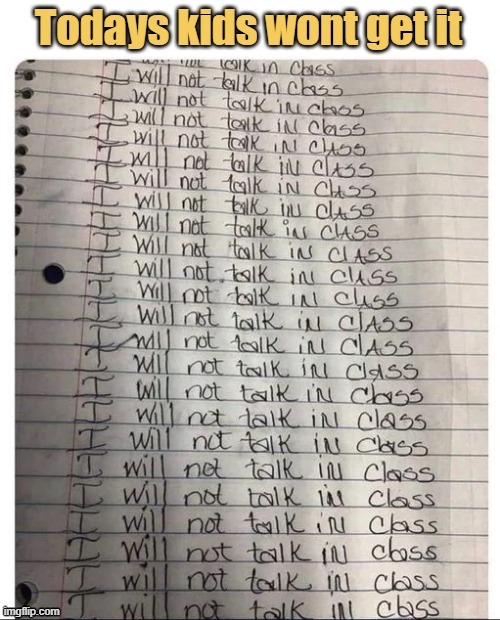 Todays kids wont get it
not talk in class
I will not talk in class
I will not talk in class
I will not talk in class
I will not talk in clAss
I will not talk in clAss
I will not talk in clAss
I will not talk in clAss
I will not talk in clAss
I will not talk in clAss
I will not talk in clAss
I will not talk in clAss
I will not talk in clAss
I will not talk in clAss
I will not talk in class
I will not talk in class
I will not talk in class
I will not talk in class
I will not talk in class
I will not talk in class
I will not talk in class
I will not talk in class
I will not talk in class
I will not talk in class
imgflip.com